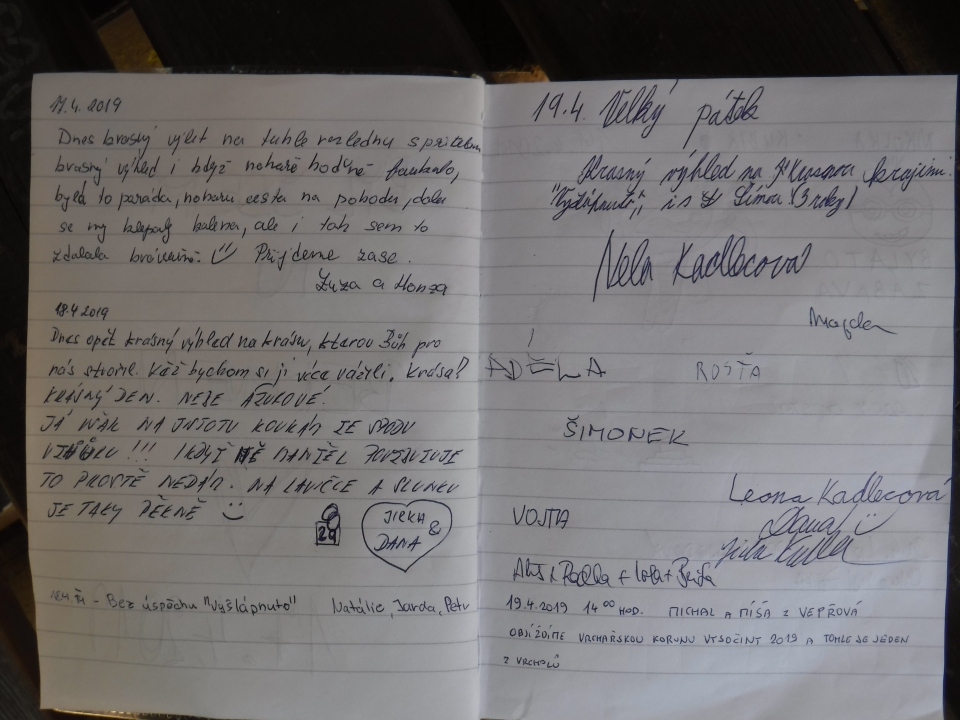 17.4. 2019
Dnes krásný výlet na tuhle rozhlednu s přítelem
krásný výhled i když nohaře hodně foukalo,
byla to paráda, nohoru cesta na pohodu, dolu
se my klepaly kolena, ale i tak sem to
zdolala bravůrně. Přijdeme zase.
Zuza a Honza
18.4 2019
Dnes opět krásný výhled na krásu, kterou Bůh pro
nás stvořil. Kéž bychom si jí více vážili. Krása!
KRÁSNÝ DEN. NEBE AZUROVÉ!
JÁ VŠAK NA JISTOTU KOUKÁM ZE SPODU
VZHŮRU!!! I KDYŽ MĚ MANŽEL POVZBUZUJE
TO PROSTĚ NEDÁM. NA LAVIČCE A SLUNKU
JE TAKY PĚKNĚ
JIRKA
&
DANA
- Bez úspěchu "Vyšlápnuto" Natálie, Jarda, Petr
19.4. Velký pátek
Krásný výhled na krajinu.
"Vyšlápnuto" i s Šímou (3 roky)
Nela Kadlecová
Majda
ADÉLA ROSŤA
ŠIMONEK
Leona Kadlecová
VOJTA Dana
Radka + Lola +
19.4.2019 14 00 HOD. MICHAL A MÍŠA Z VEPŘOVÁ
OBJÍŽDÍME VRCHAŘSKOU KORUNU VYSOČINY 2019 A TOHLE JE JEDEN
Z VRCHOLŮ